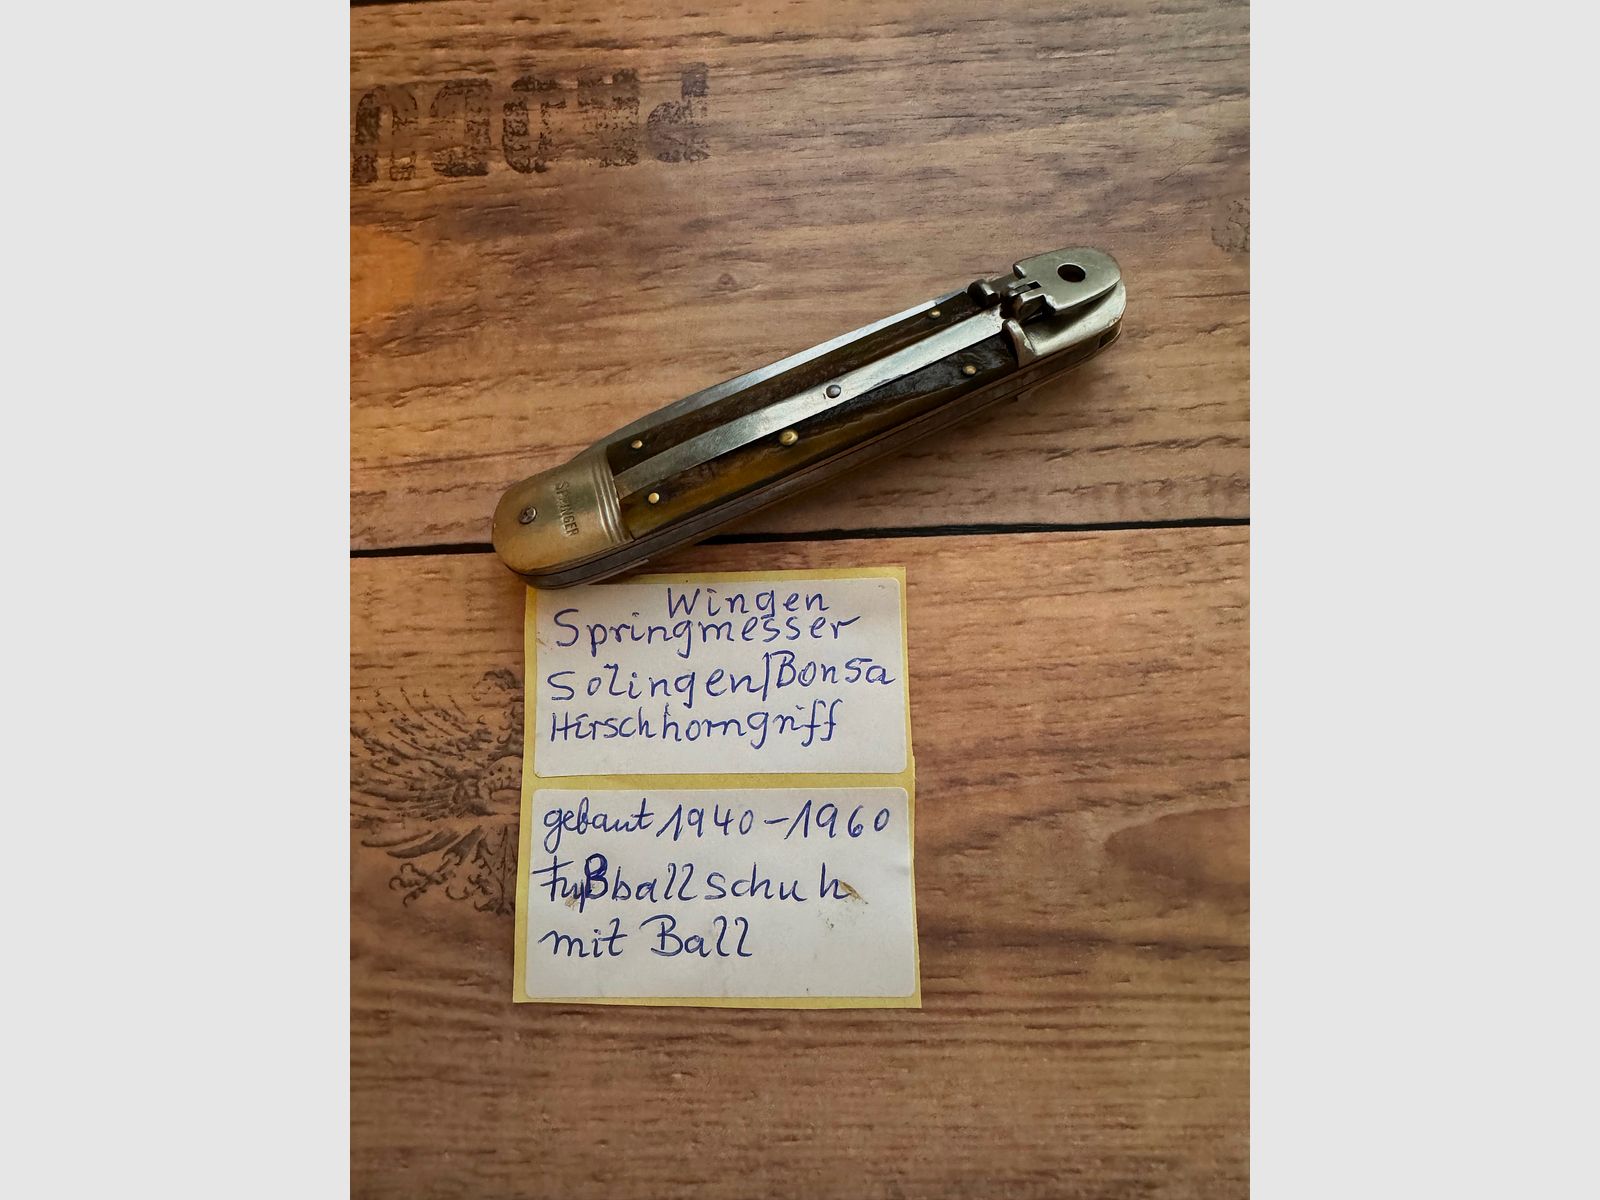 SPRINGER
Wingen
Springmesser
Solingen/Bonsa
Hirschhorngriff
gebaut 1940-1960
Fußballschuh
mit Ball